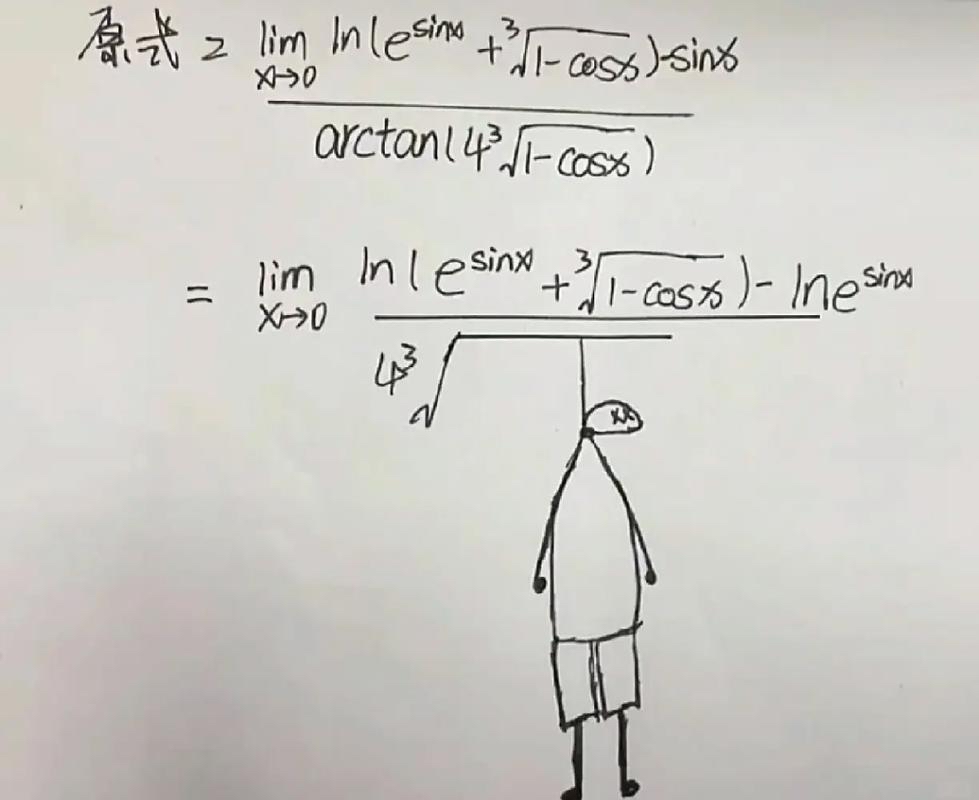 原式 = lim ln(e^sinx + ³√1-cosx)-sinx
x→0
arctan(4³√1-cosx)
= lim ln(e^sinx + ³√1-cosx)- lne^sinx
x→0
4³√
xx